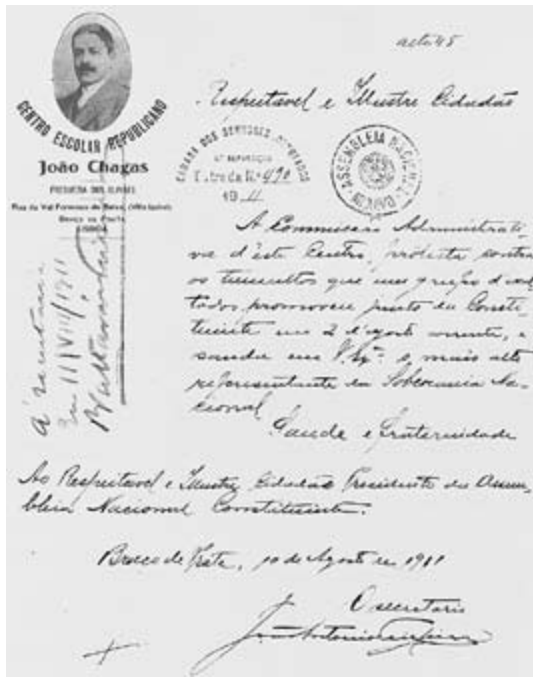 acto 45
CENTRO ESCOLAR REPUBLICANO
João Chagas
FREGUESIA DOS OLIVAES
LISBOA
Respeitavel e Illustre Cidadão
CAMARA DOS SENHORES DEPUTADOS
Entrada N.º 490
19 11
ASSEMBLEIA NACIONAL
ARQUIVO
A Commissão Administrati-
va d'este Centro, protesta contra
os tumultos que um grupo d'
tados promoveu junto da Consti-
tuinte em 2 d'agosto corrente, e
sauda em V. Ex.ª o mais alto
representante da Soberania Na-
cional
Saude e Fraternidade
Ao Respeitavel e Illustre Cidadão Presidente da Assem-
bleia Nacional Constituinte.
Braço de Prata, 10 de Agosto de 1911
O secretario
Á
Em 11/VIII/1911